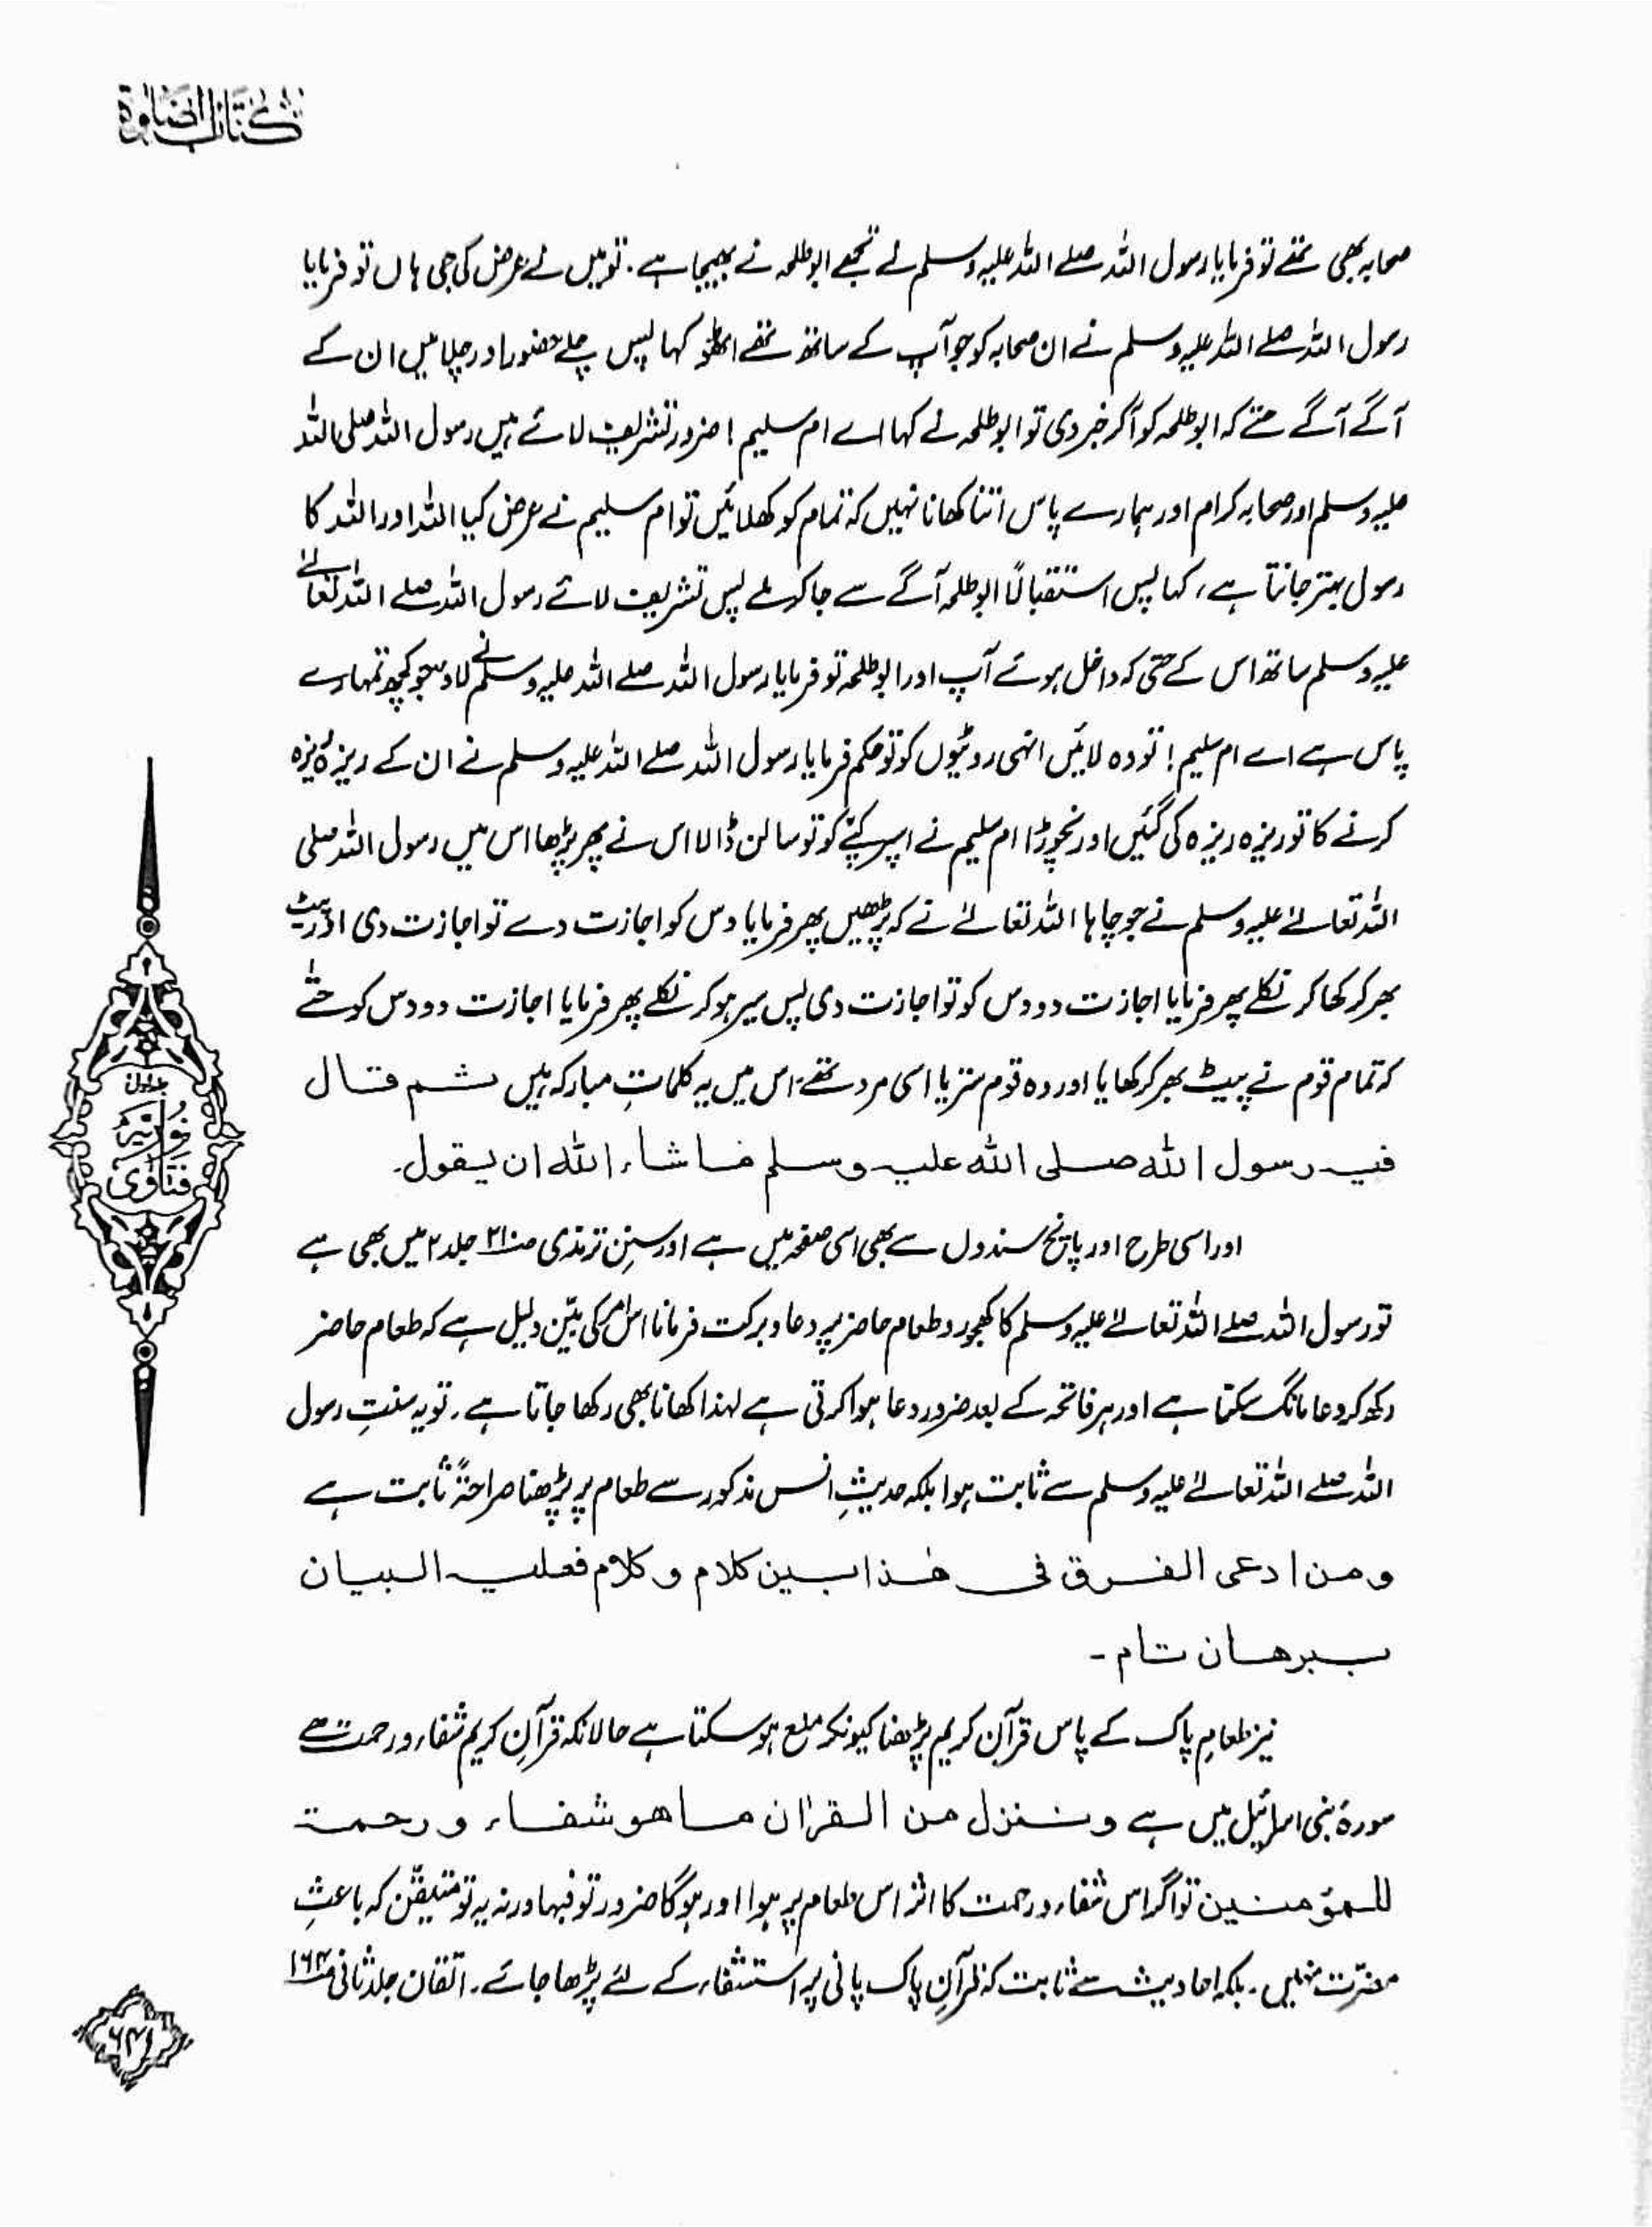 کتاب الصلوٰة
صحابہ بھی تھے تو فرمایا رسول اللہ صلے اللہ علیہ وسلم نے تجھے ابوطلحہ نے بھیجا ہے۔ تو میں نے عرض کی جی ہاں تو فرمایا
رسول اللہ صلے اللہ علیہ وسلم نے ان صحابہ کو جو آپ کے ساتھ تھے اٹھو کہا پس چلے حضور اور چلا میں ان کے
آگے آگے حتے کہ ابوطلحہ کو آکر خبر دی تو ابوطلحہ نے کہا اے ام سلیم! ضرور تشریف لائے ہیں رسول اللہ صلی اللہ
علیہ وسلم اور صحابہ کرام اور ہمارے پاس اتنا کھانا نہیں کہ تمام کو کھلائیں تو ام سلیم نے عرض کیا اللہ اور اللہ کا
رسول بہتر جانتا ہے، کہا پس استقبالاً ابوطلحہ آگے سے جا کر ملے پس تشریف لائے رسول اللہ صلے اللہ تعالےٰ
علیہ وسلم ساتھ اس کے حتی کہ داخل ہوئے آپ اور ابوطلحہ تو فرمایا رسول اللہ صلے اللہ علیہ وسلم نے لاؤ جو کچھ تمہارے
پاس ہے اے ام سلیم! تو وہ لائیں انہی روٹیوں کو تو حکم فرمایا رسول اللہ صلے اللہ علیہ وسلم نے ان کے ریزہ ریزہ
کرنے کا تو ریزہ ریزہ کی گئیں اور نچوڑا ام سلیم نے اس پر کپّے کو تو سالن ڈالا اس نے پھر پڑھا اس میں رسول اللہ صلی
اللہ تعالےٰ علیہ وسلم نے جو چاہا اللہ تعالےٰ نے کہ پڑھیں پھر فرمایا دس کو اجازت دے تو اجازت دی اور پیٹ
بھر کر کھا کر نکلے پھر فرمایا اجازت دو دس کو تو اجازت دی پس سیر ہو کر نکلے پھر فرمایا اجازت دو دس کو حتےٰ
کہ تمام قوم نے پیٹ بھر کر کھایا اور وہ قوم ستر یا اسی مرد تھے، اس میں یہ کلماتِ مبارکہ ہیں ثم قال
فیہ رسول اللہ صلی اللہ علیہ وسلم ماشاء اللہ ان یقول۔
اور اسی طرح اور پانچ سندوں سے بھی اسی صفحہ میں ہے اور سنن ترمذی ص۲۱۰ جلد ۲ میں بھی ہے
تو رسول اللہ صلے اللہ تعالےٰ علیہ وسلم کا کھجور و طعام حاضر پر دعاء برکت فرمانا اس امر کی بیّن دلیل ہے کہ طعام حاضر
رکھ کر دعا مانگ سکتا ہے اور ہر فاتحہ کے بعد ضرور دعا ہوا کرتی ہے لہذا کھانا بھی رکھا جاتا ہے۔ تو یہ سنتِ رسول
اللہ صلے اللہ تعالےٰ علیہ وسلم سے ثابت ہوا بلکہ حدیثِ انس مذکور سے طعام پر پڑھنا صراحۃً ثابت ہے
ومن ادعی الفرق فی ھٰذا بین کلام وکلام فعلیہ البیان
ببرھان تام۔
نیز طعامِ پاک کے پاس قرآن کریم پڑھنا کیونکر منع ہو سکتا ہے حالانکہ قرآنِ کریم شفاء و رحمت ہے
سورۂ بنی اسرائیل میں ہے وننزل من القرٰان ما ھو شفاء ورحمۃ
للمؤمنین تو اگر اس شفاء و رحمت کا اثر اس طعام پر ہوا اور ہوگا ضرور تو فبہا ورنہ یہ تو متیقّن کہ باعثِ
مضرّت نہیں۔ بلکہ احادیث سے ثابت کہ قرآنِ پاک پانی پر استشفاء کے لئے پڑھا جائے۔ اتقان جلد ثانی ص۱۶۴
جلد اول
نوریّہ
فتاوٰی
۶۴۱